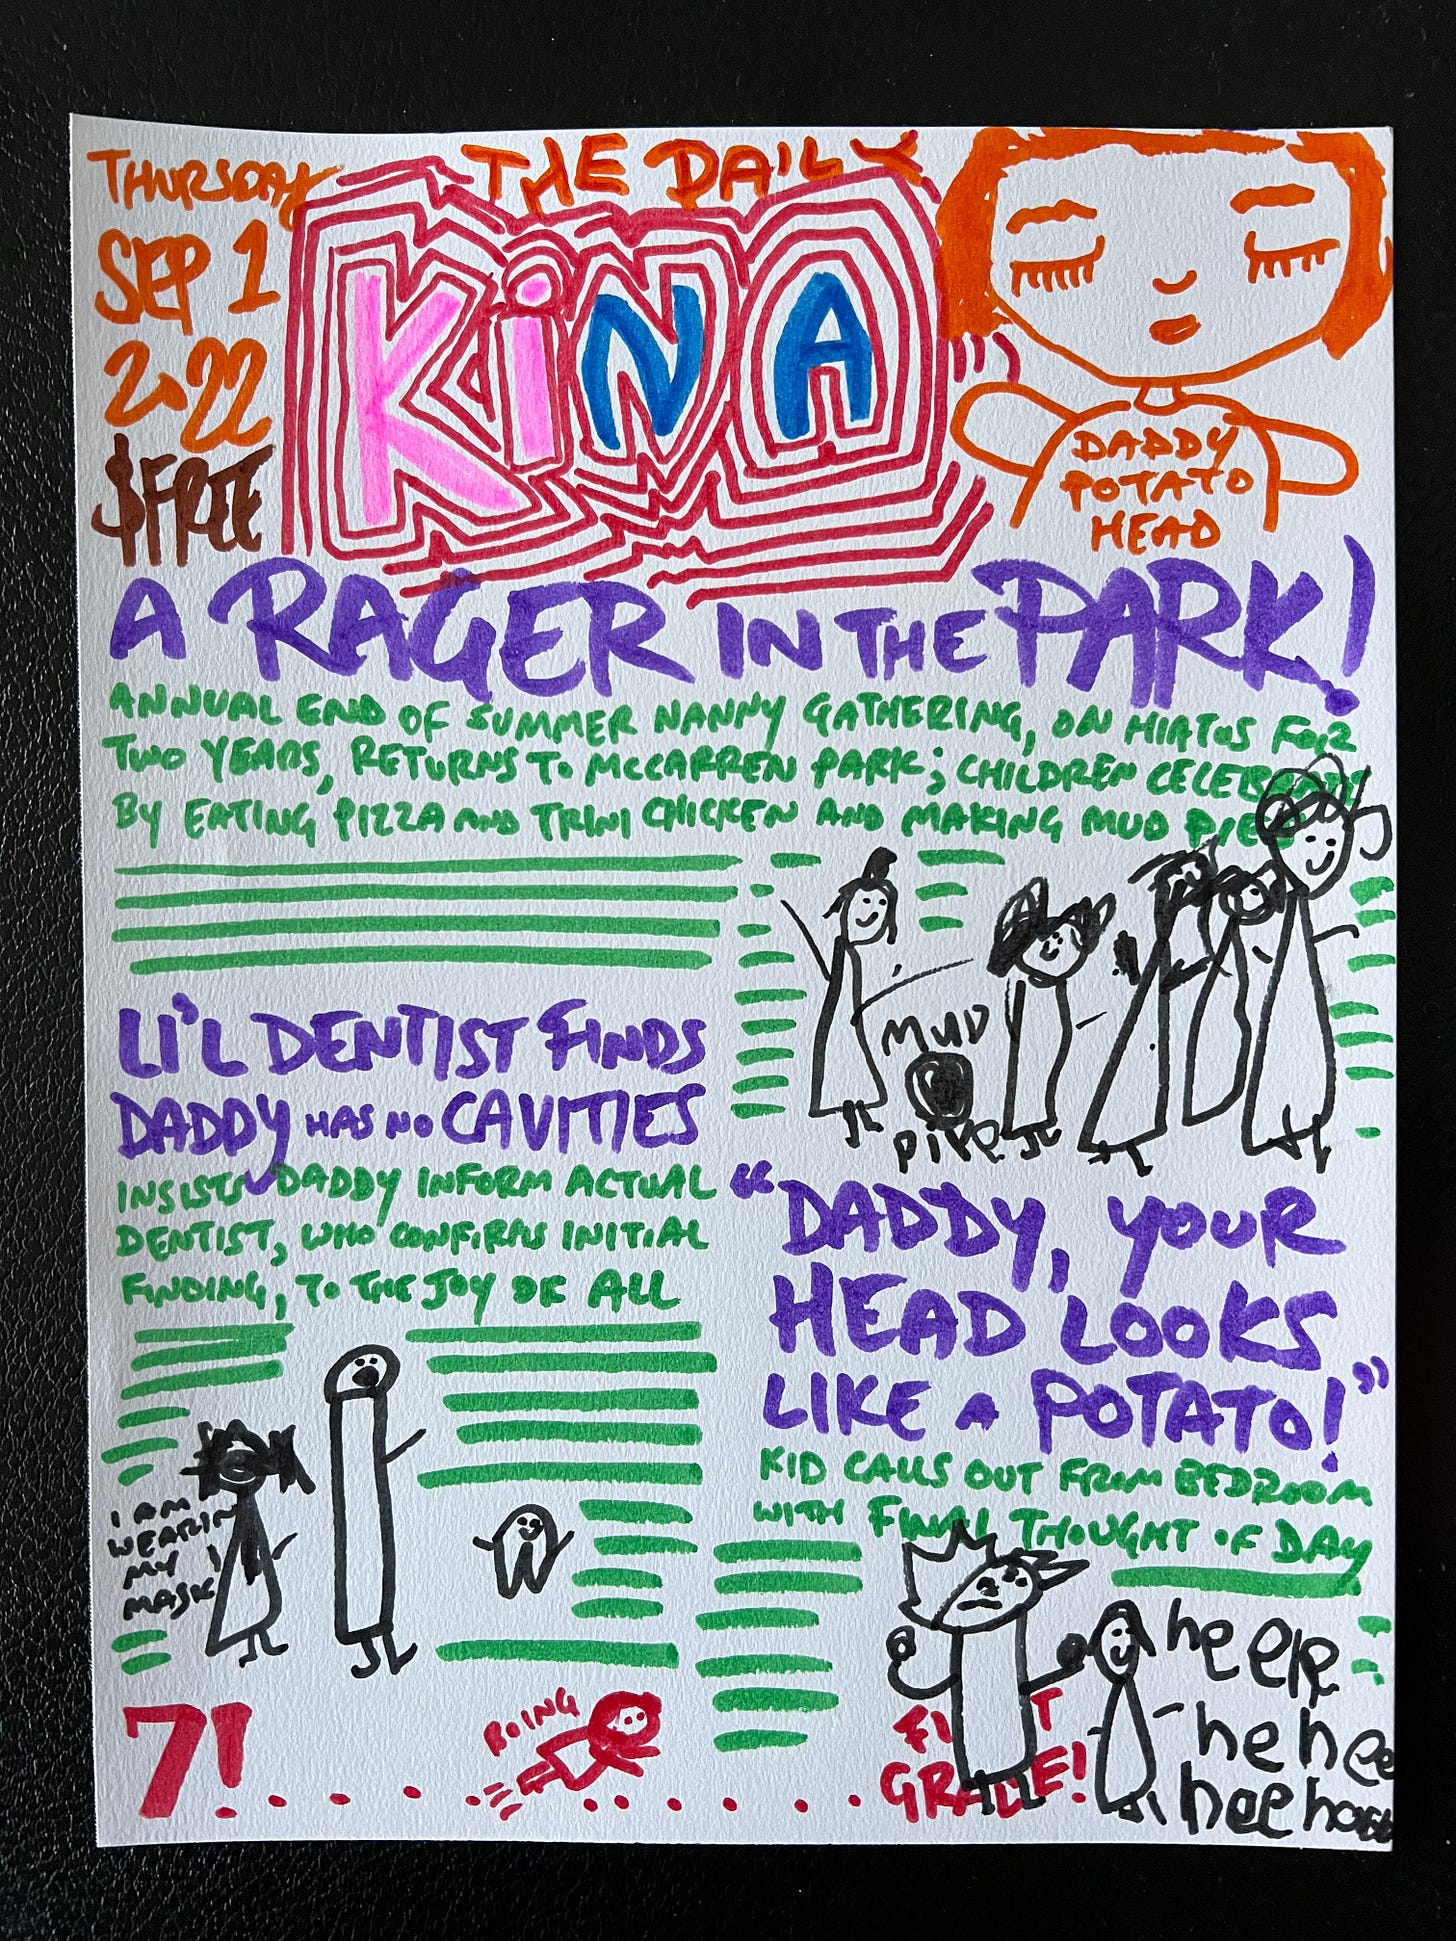 THURSDAY
SEP 1
2022
$FREE
THE DAILY
KiNA
DADDY
POTATO
HEAD
A RAGER IN THE PARK!
ANNUAL END OF SUMMER NANNY GATHERING, ON HIATUS FOR
TWO YEARS, RETURNS TO MCCARREN PARK; CHILDREN CELEBRATE
BY EATING PIZZA AND TRINI CHICKEN AND MAKING MUD PIES
MUD
PIPE
LI'L DENTIST FINDS
DADDY HAS NO CAVITIES
INSISTS DADDY INFORM ACTUAL
DENTIST, WHO CONFIRMS INITIAL
FINDING, TO THE JOY OF ALL
I AM
WEARIN
MY
MASK!
"DADDY, YOUR
HEAD LOOKS
LIKE A POTATO!"
KID CALLS OUT FROM BEDROOM
WITH FINAL THOUGHT OF DAY
he
hehee
hee
7!
BOING
FIRST
GRADE!